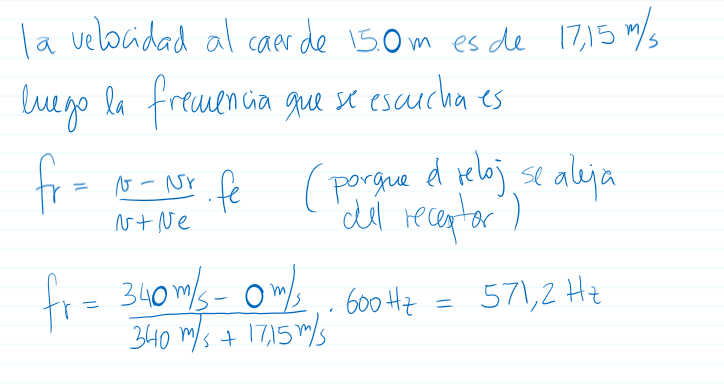 la velocidad al caer de 15.0 m es de 17,15 m/s
luego la frecuencia que se escucha es
fr = (v - vr)/(v + ve) · fe (porque el reloj se aleja
del receptor)
fr = (340 m/s - 0 m/s)/(340 m/s + 17,15 m/s) · 600 Hz = 571,2 Hz